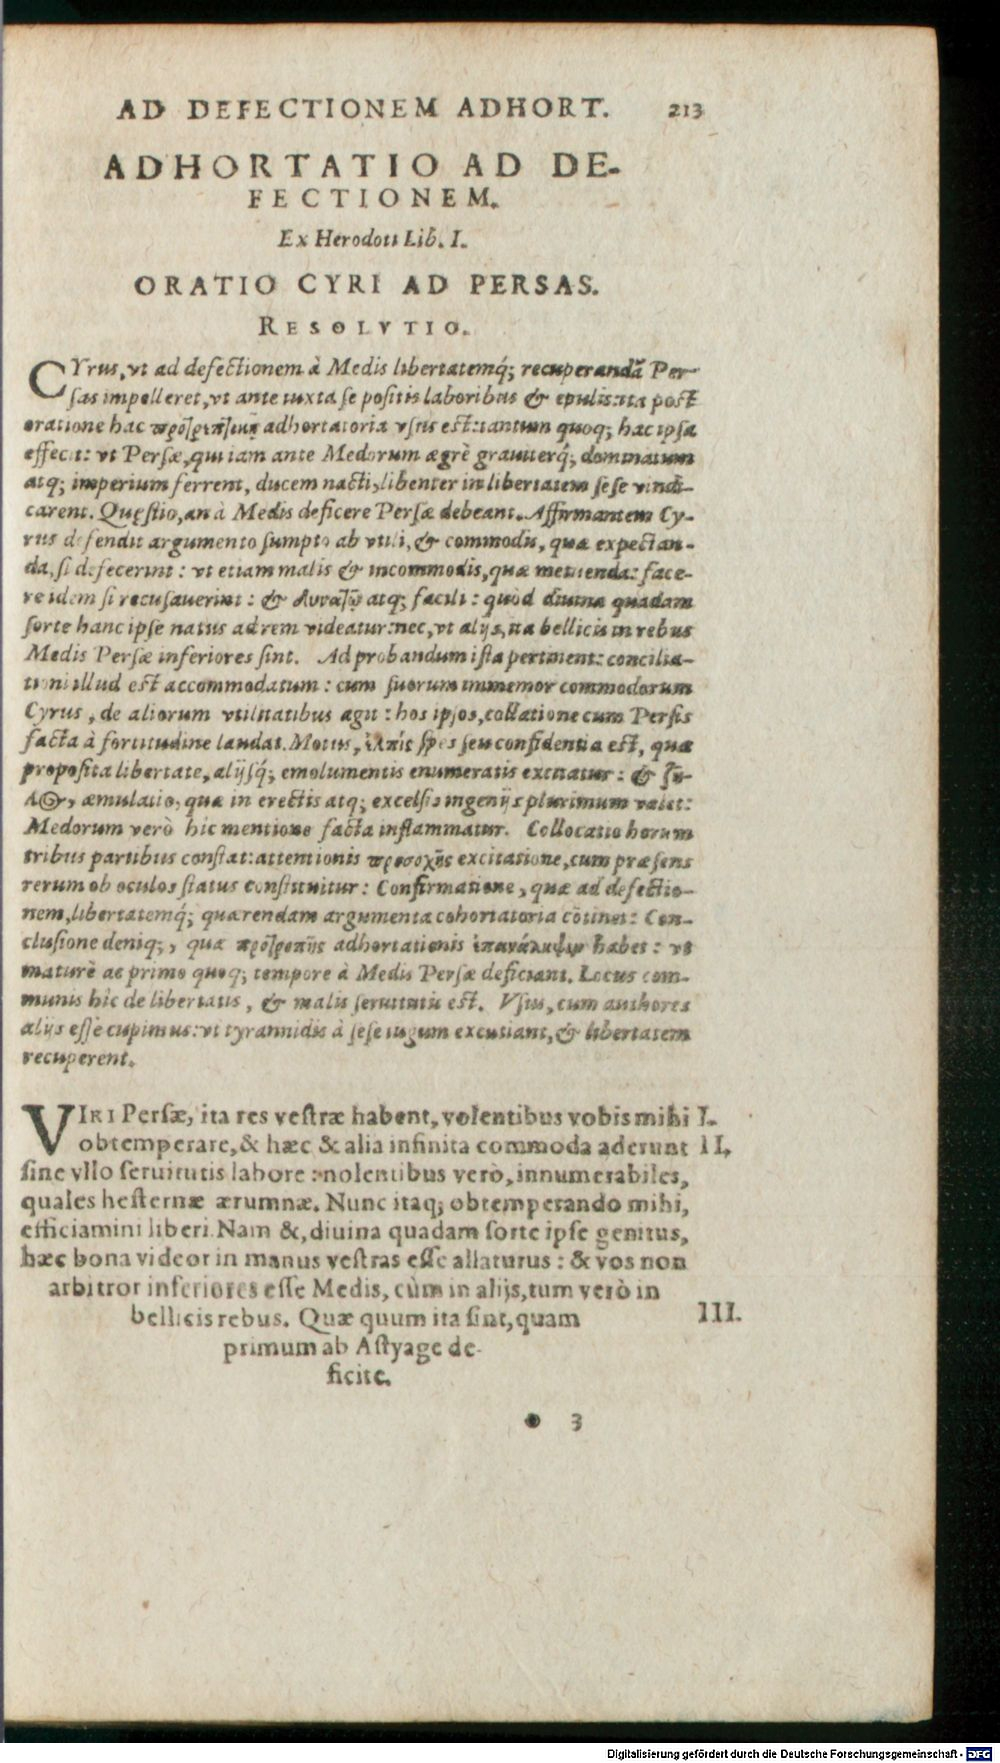 AD DEFECTIONEM ADHORT. 213
ADHORTATIO AD DE-
FECTIONEM.
Ex Herodoti Lib. I.
ORATIO CYRI AD PERSAS.
RESOLVTIO.
CYrus, vt ad defectionem à Medis libertatemq́; recuperandã Per-
sas impelleret, vt ante iuxta se positis laboribus & epulis: ita post
oratione hac adhortatoria vsus est: tantum quoq; hac ipsa
effecit: vt Persæ, qui iam ante Medorum ægrè grauiterq́; dominatum
atq; imperium ferrent, ducem nacti, libenter in libertatem sese vindi-
carent. Quęstio, an à Medis deficere Persæ debeant. Affirmantem Cy-
rus defendit argumento sumpto ab vtili, & commodis, quæ expectan-
da, si defecerint: vt etiam malis & incommodis, quæ metuenda: face-
re idem si recusauerint: & δυνατῷ atq; facili: quòd diuina quadam
sorte hanc ipse natus ad rem videatur: nec, vt alijs, ita bellicis in rebus
Medis Persæ inferiores sint. Ad probandum ista pertinent: concilia-
tioni illud est accommodatum: cum suorum immemor commodorum
Cyrus, de aliorum vtilitatibus agit: hos ipsos, collatione cum Persis
facta à fortitudine laudat. Motus, ἐλπὶς spes seu confidentia est, quæ
proposita libertate, alijsq́; emolumentis enumeratis excitatur: & ζῆ-
λος, æmulatio, quæ in erectis atq; excelsis ingenijs plurimum valet:
Medorum verò hic mentione facta inflammatur. Collocatio horum
tribus partibus constat: attentionis προσοχῆς excitatione, cum præsens
rerum ob oculos status constituitur: Confirmatione, quæ ad defectio-
nem, libertatemq́; quærendam argumenta cohortatoria cõtinet: Con-
clusione deniq;, quæ προτροπῆς adhortationis ἐπανάληψιν habet: vt
maturè ac primo quoq; tempore à Medis Persæ deficiant. Locus com-
munis hic de libertatis, & malis seruitutis est. Vsus, cum authores
alijs esse cupimus: vt tyrannidis à sese iugum excutiant, & libertatem
recuperent.
VIRI Persæ, ita res vestræ habent, volentibus vobis mihi I.
obtemperare, & hæc & alia infinita commoda aderunt II.
sine vllo seruitutis labore: nolentibus verò, innumerabiles,
quales hesternæ ærumnæ. Nunc itaq; obtemperando mihi,
efficiamini liberi. Nam &, diuina quadam sorte ipse genitus,
hæc bona videor in manus vestras esse allaturus: & vos non
arbitror inferiores esse Medis, cùm in alijs, tum verò in
bellicis rebus. Quæ quum ita sint, quam III.
primum ab Astyage de-
ficite.
3
Digitalisierung gefördert durch die Deutsche Forschungsgemeinschaft - DFG